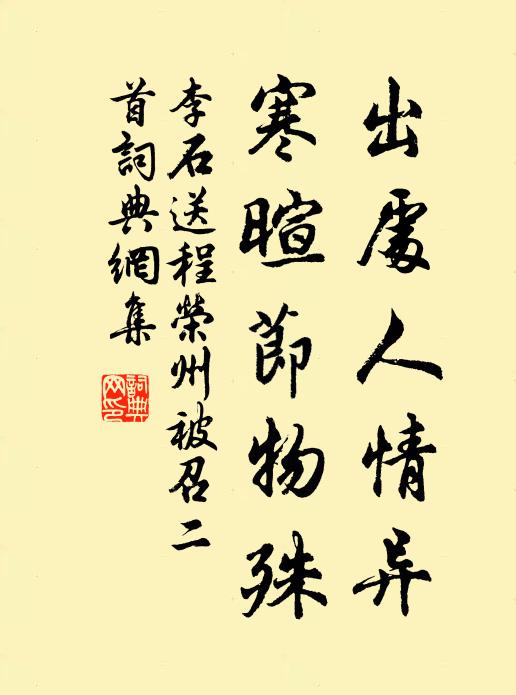 出處人情异
寒暄節物殊
李石送程榮州被召二
首詞典網集
詞典
網印